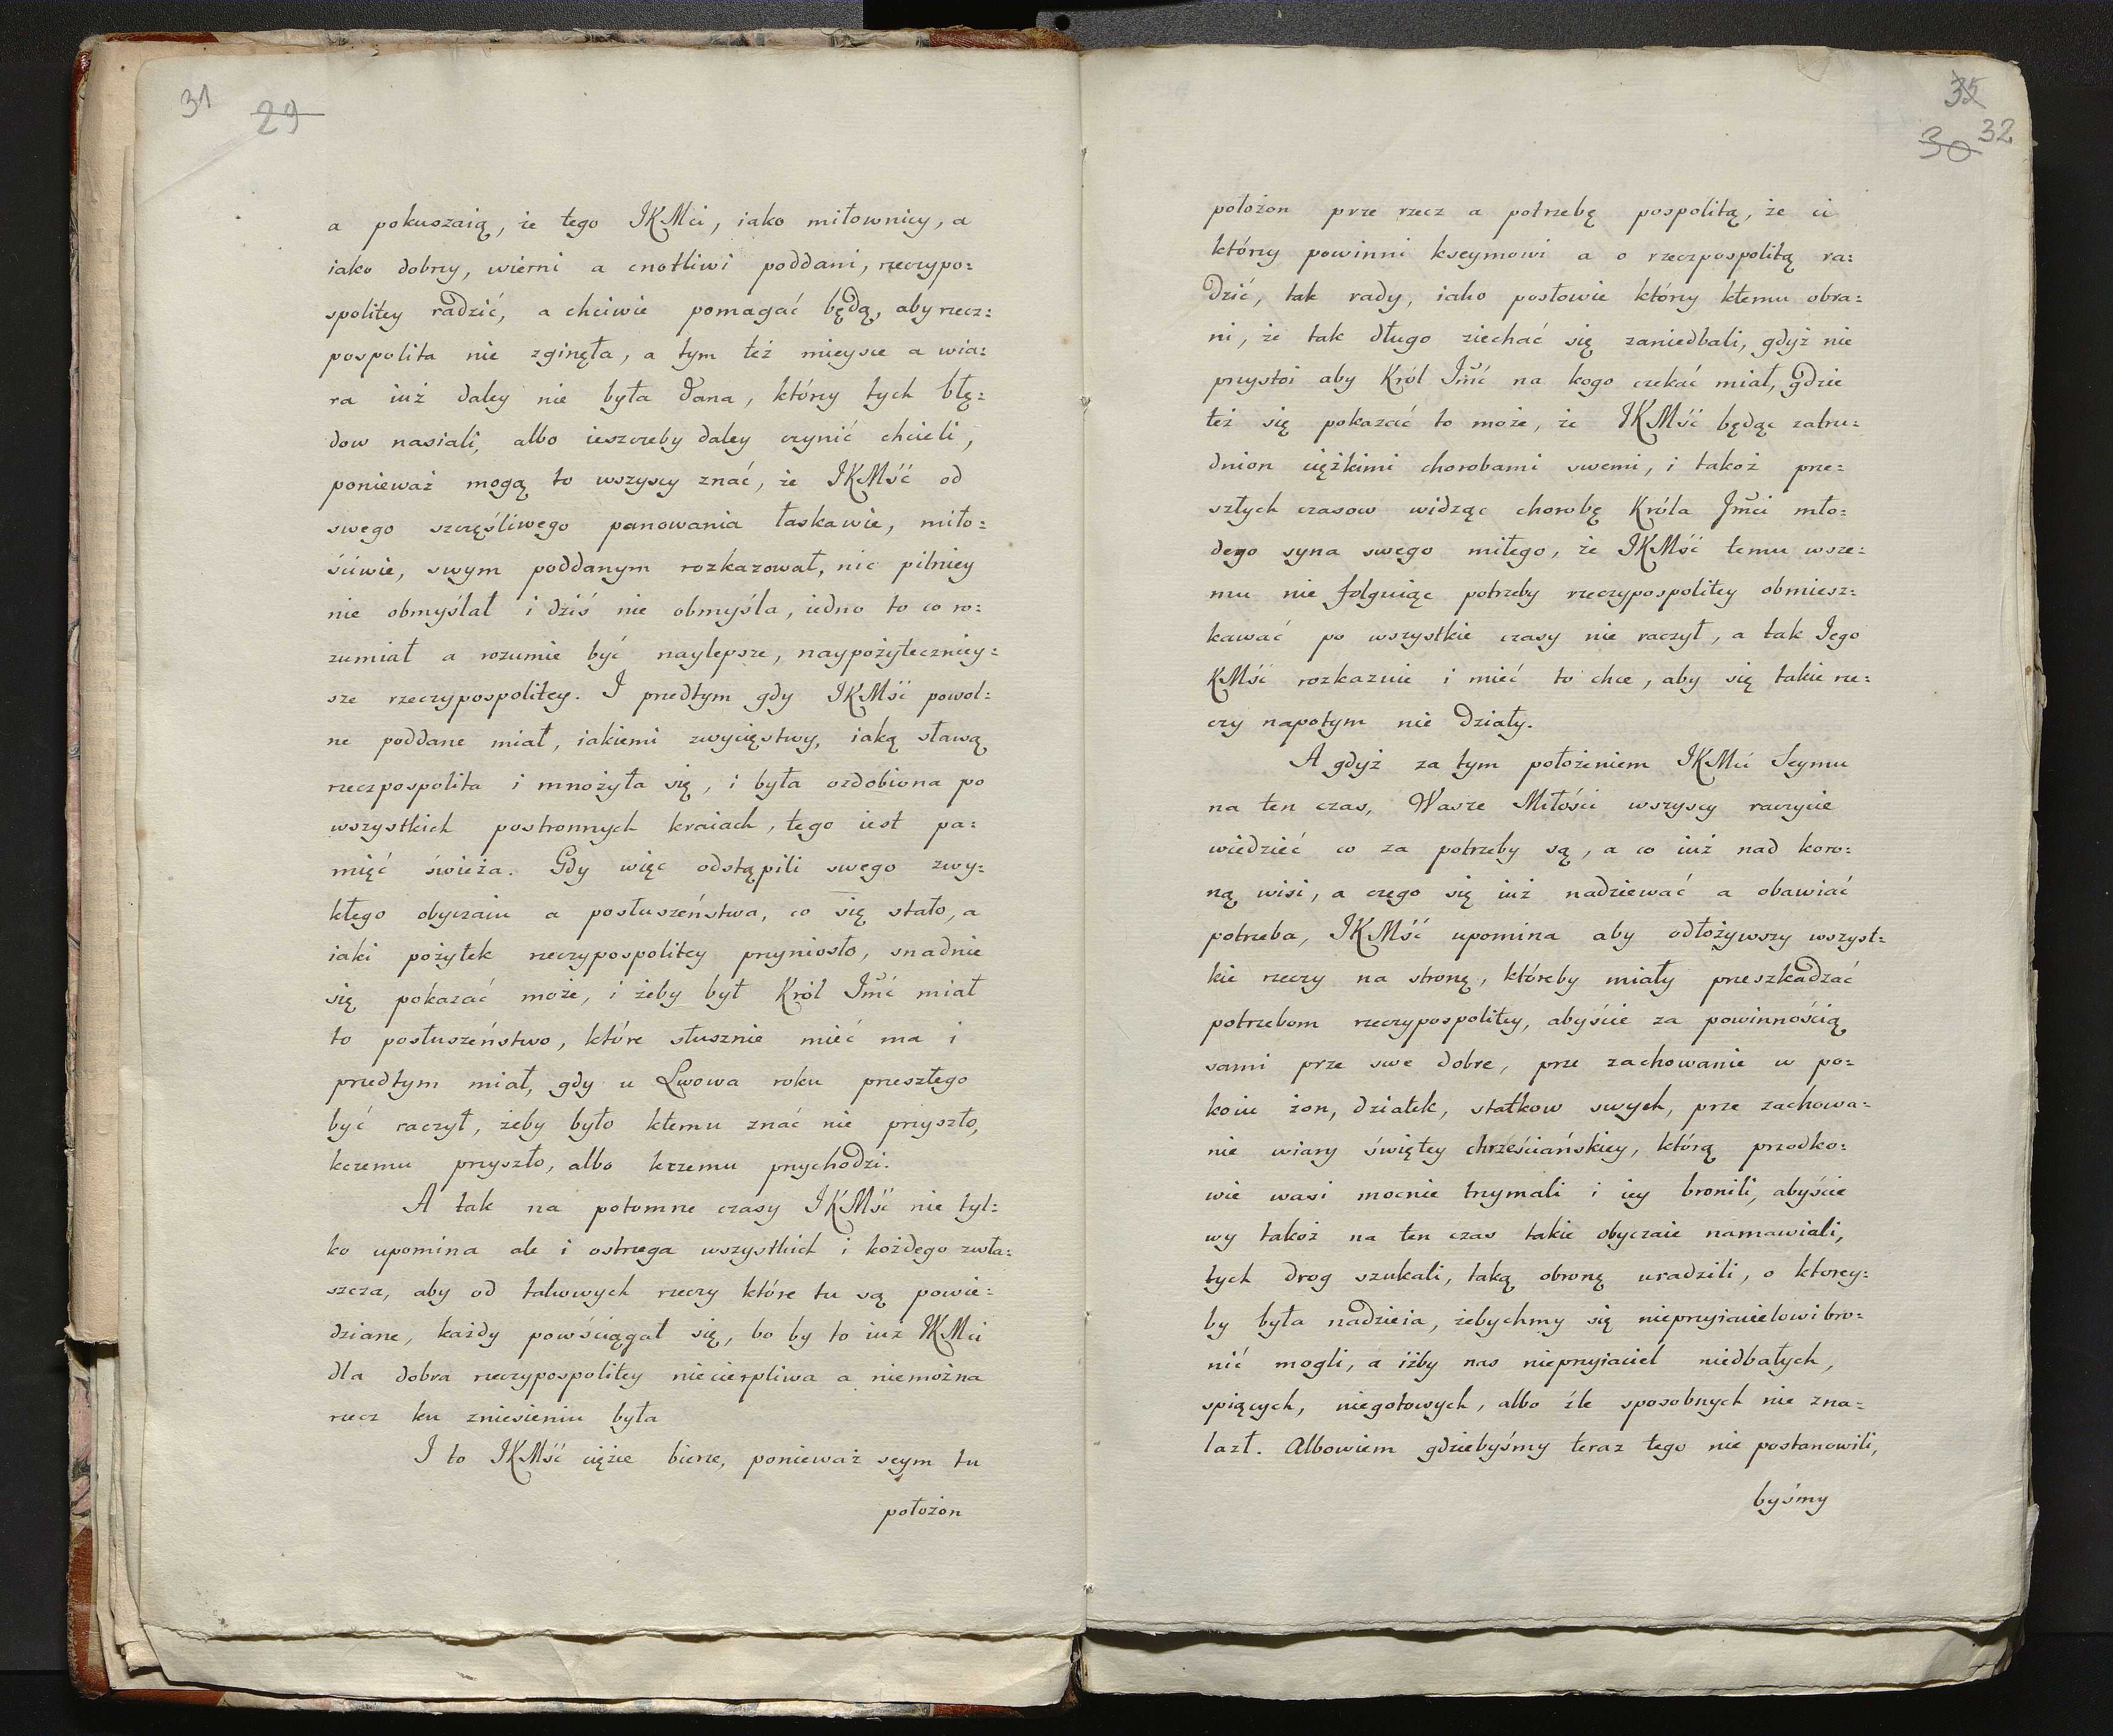 31 29
a pokuszaią, że tego JKMci, iako miłownicy, a
iako dobrzy, wierni a cnotliwi poddani, rzeczypo=
spolitey radzić, a chciwie pomagać będą, aby rzecz=
pospolita nie zginęła, a tym też mieysce a wia=
ra iuż daley nie była dana, którzy tych błę=
dow nasiali, albo ieszczeby daley czynić chcieli,
ponieważ mogą to wszyscy znać, że JKMść od
swego szczęśliwego panowania łaskawie, miło=
ściwie, swym poddanym rozkazował, nic pilniey
nie obmyślał i dziś nie obmyśla, iedno to co ro=
zumiał a rozumie być naylepsze, naypożyteczniey=
sze rzeczypospolitey. I przedtym gdy JKMść powol=
ne poddane miał, iakiemi zwycięstwy, iaką sławą
rzeczpospolita i mnożyła się, i była ozdobiona po
wszystkich postronnych kraiach, tego iest pa=
mięć świeża. Gdy więc odstąpili swego zwy=
kłego obyczaiu a posłuszeństwa, co się stało, a
iaki pożytek rzeczypospolitey przyniosło, snadnie
się pokazać może, i żeby był Król Jmć miał
to posłuszeństwo, które słusznie mieć ma i
przedtym miał, gdy u Lwowa roku przeszłego
być raczył, żeby było ktemu znać nie przyszło,
kczemu przyszło, albo kczemu przychodzi.
A tak na potomne czasy JKMść nie tyl=
ko upomina ale i ostrzega wszystkich i każdego zwła=
szcza, aby od takowych rzeczy które tu są powie=
dziane, każdy powściągał się, bo by to iuż JKMci
dla dobra rzeczypospolitey niecierpliwa a niemożna
rzecz ku zniesieniu była
I to JKMść ciężce bierze, ponieważ seym tu
położon
35
30 32
położon prze rzecz a potrzebę pospolitą, że ci
którzy powinni kseymowi a o rzeczpospolitą ra=
dzić, tak rady, iako posłowie którzy ktemu obra=
ni, że tak długo ziechać się zaniedbali, gdyż nie
przystoi aby Król Jmć na kogo czekać miał, gdzie
też się pokazać to może, że JKMść będąc zatru=
dnion ciężkimi chorobami swemi, i takoż prze=
szłych czasow widząc chorobę Króla Jmci mło=
dego syna swego miłego, że JKMść temu wsze=
mu nie folguiąc potrzeby rzeczypospolitey obmiesz=
kawać po wszystkie czasy nie raczył, a tak Jego
KMść rozkazuie i mieć to chce, aby się takie rze=
czy napotym nie działy.
A gdyż za tym położeniem JKMci Seymu
na ten czas, Wasze Miłości wszyscy raczycie
wiedzieć co za potrzeby są, a co iuż nad koro=
ną wisi, a czego się iuż nadziewać a obawiać
potrzeba, JKMść upomina aby odłożywszy wszyst=
kie rzeczy na stronę, któreby miały przeszkadzać
potrzebom rzeczypospolitey, abyście za powinnością
sami prze swe dobre, prze zachowanie w po=
koiu żon, działek, statkow swych, prze zachowa=
nie wiary świętey chrześciańskiey, którą przodko=
wie wasi mocnie trzymali i iey bronili, abyście
wy takoż na ten czas takie obyczaie namawiali,
tych drog szukali, taką obronę uradzili, o ktorey=
by była nadzieia, żebychmy się nieprzyiacielowi bro=
nić mogli, a iżby nas nieprzyiaciel niedbałych,
spiących, niegotowych, albo źle sposobnych nie zna=
lazł. Albowiem gdziebyśmy teraz tego nie postanowili,
byśmy